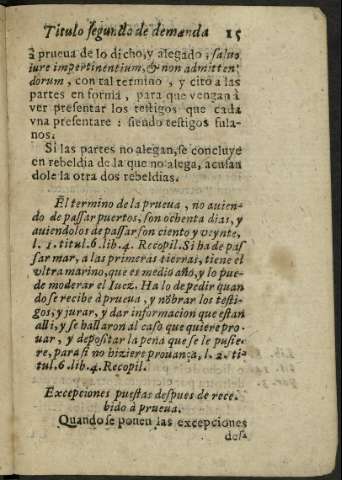 Titulo segundo de demanda 15
à prueua de lo dicho, y alegado, saluo
iure impertinentium, & non admitten-
dorum, con tal termino, y citò a las
partes en forma, para que vengan à
ver presentar los testigos que cada
vna presentare: siendo testigos fula-
nos.
Si las partes no alegan, se concluye
en rebeldia de la que no alega, acusan
dole la otra dos rebeldias.
El termino de la prueua, no auien-
do de passar puertos, son ochenta dias, y
auiendolos de passar son ciento y veynte,
l. 1. titul. 6. lib. 4. Recopil. Si ha de pas
sar mar, a las primeras tierras, tiene el
vltra marino, que es medio año, y lo pue-
de moderar el Iuez. Ha lo de pedir quan
do se recibe à prueua, y nõbrar los testi-
gos, y jurar, y dar informacion que estan
alli, y se hallaron al caso que quiere pro-
uar, y depositar la pena que se le pusie-
re, para si no hiziere prouança, l. 2. ti-
tul. 6. lib. 4. Recopil.
Excepciones puestas despues de rece-
bido à prueua.
Quando se ponen las excepciones
des-